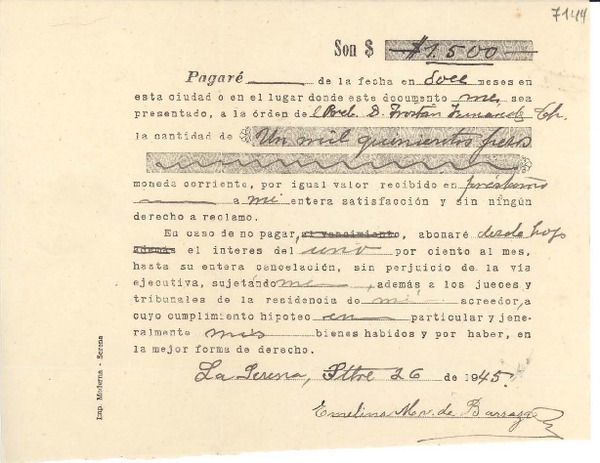 7144
Son $ 1.500
Pagaré de la fecha en doce meses en
esta ciudad o en el lugar donde este documento me sea
presentado, a la órden de l Pbro. D. Tristán Fernandez Ch.
la cantidad de Un mil quinientos pesos
moneda corriente, por igual valor recibido en préstamo
a mi entera satisfacción y sin ningún
derecho a reclamo.
En caso de no pagar, al vencimiento, abonaré desde hoy
además el interes del uno por ciento al mes,
hasta su entera cancelación, sin perjuicio de la vía
ejecutiva, sujetándo me, además a los jueces y
tribunales de la residencia de mi acreedor, a
cuyo cumplimiento hipotec en particular y jene-
ralmente mis bienes habidos y por haber, en
la mejor forma de derecho.
La Serena, Sttbre 26 de 1945.
Emelina M. v. de Barraza
Imp. Moderna - Serena